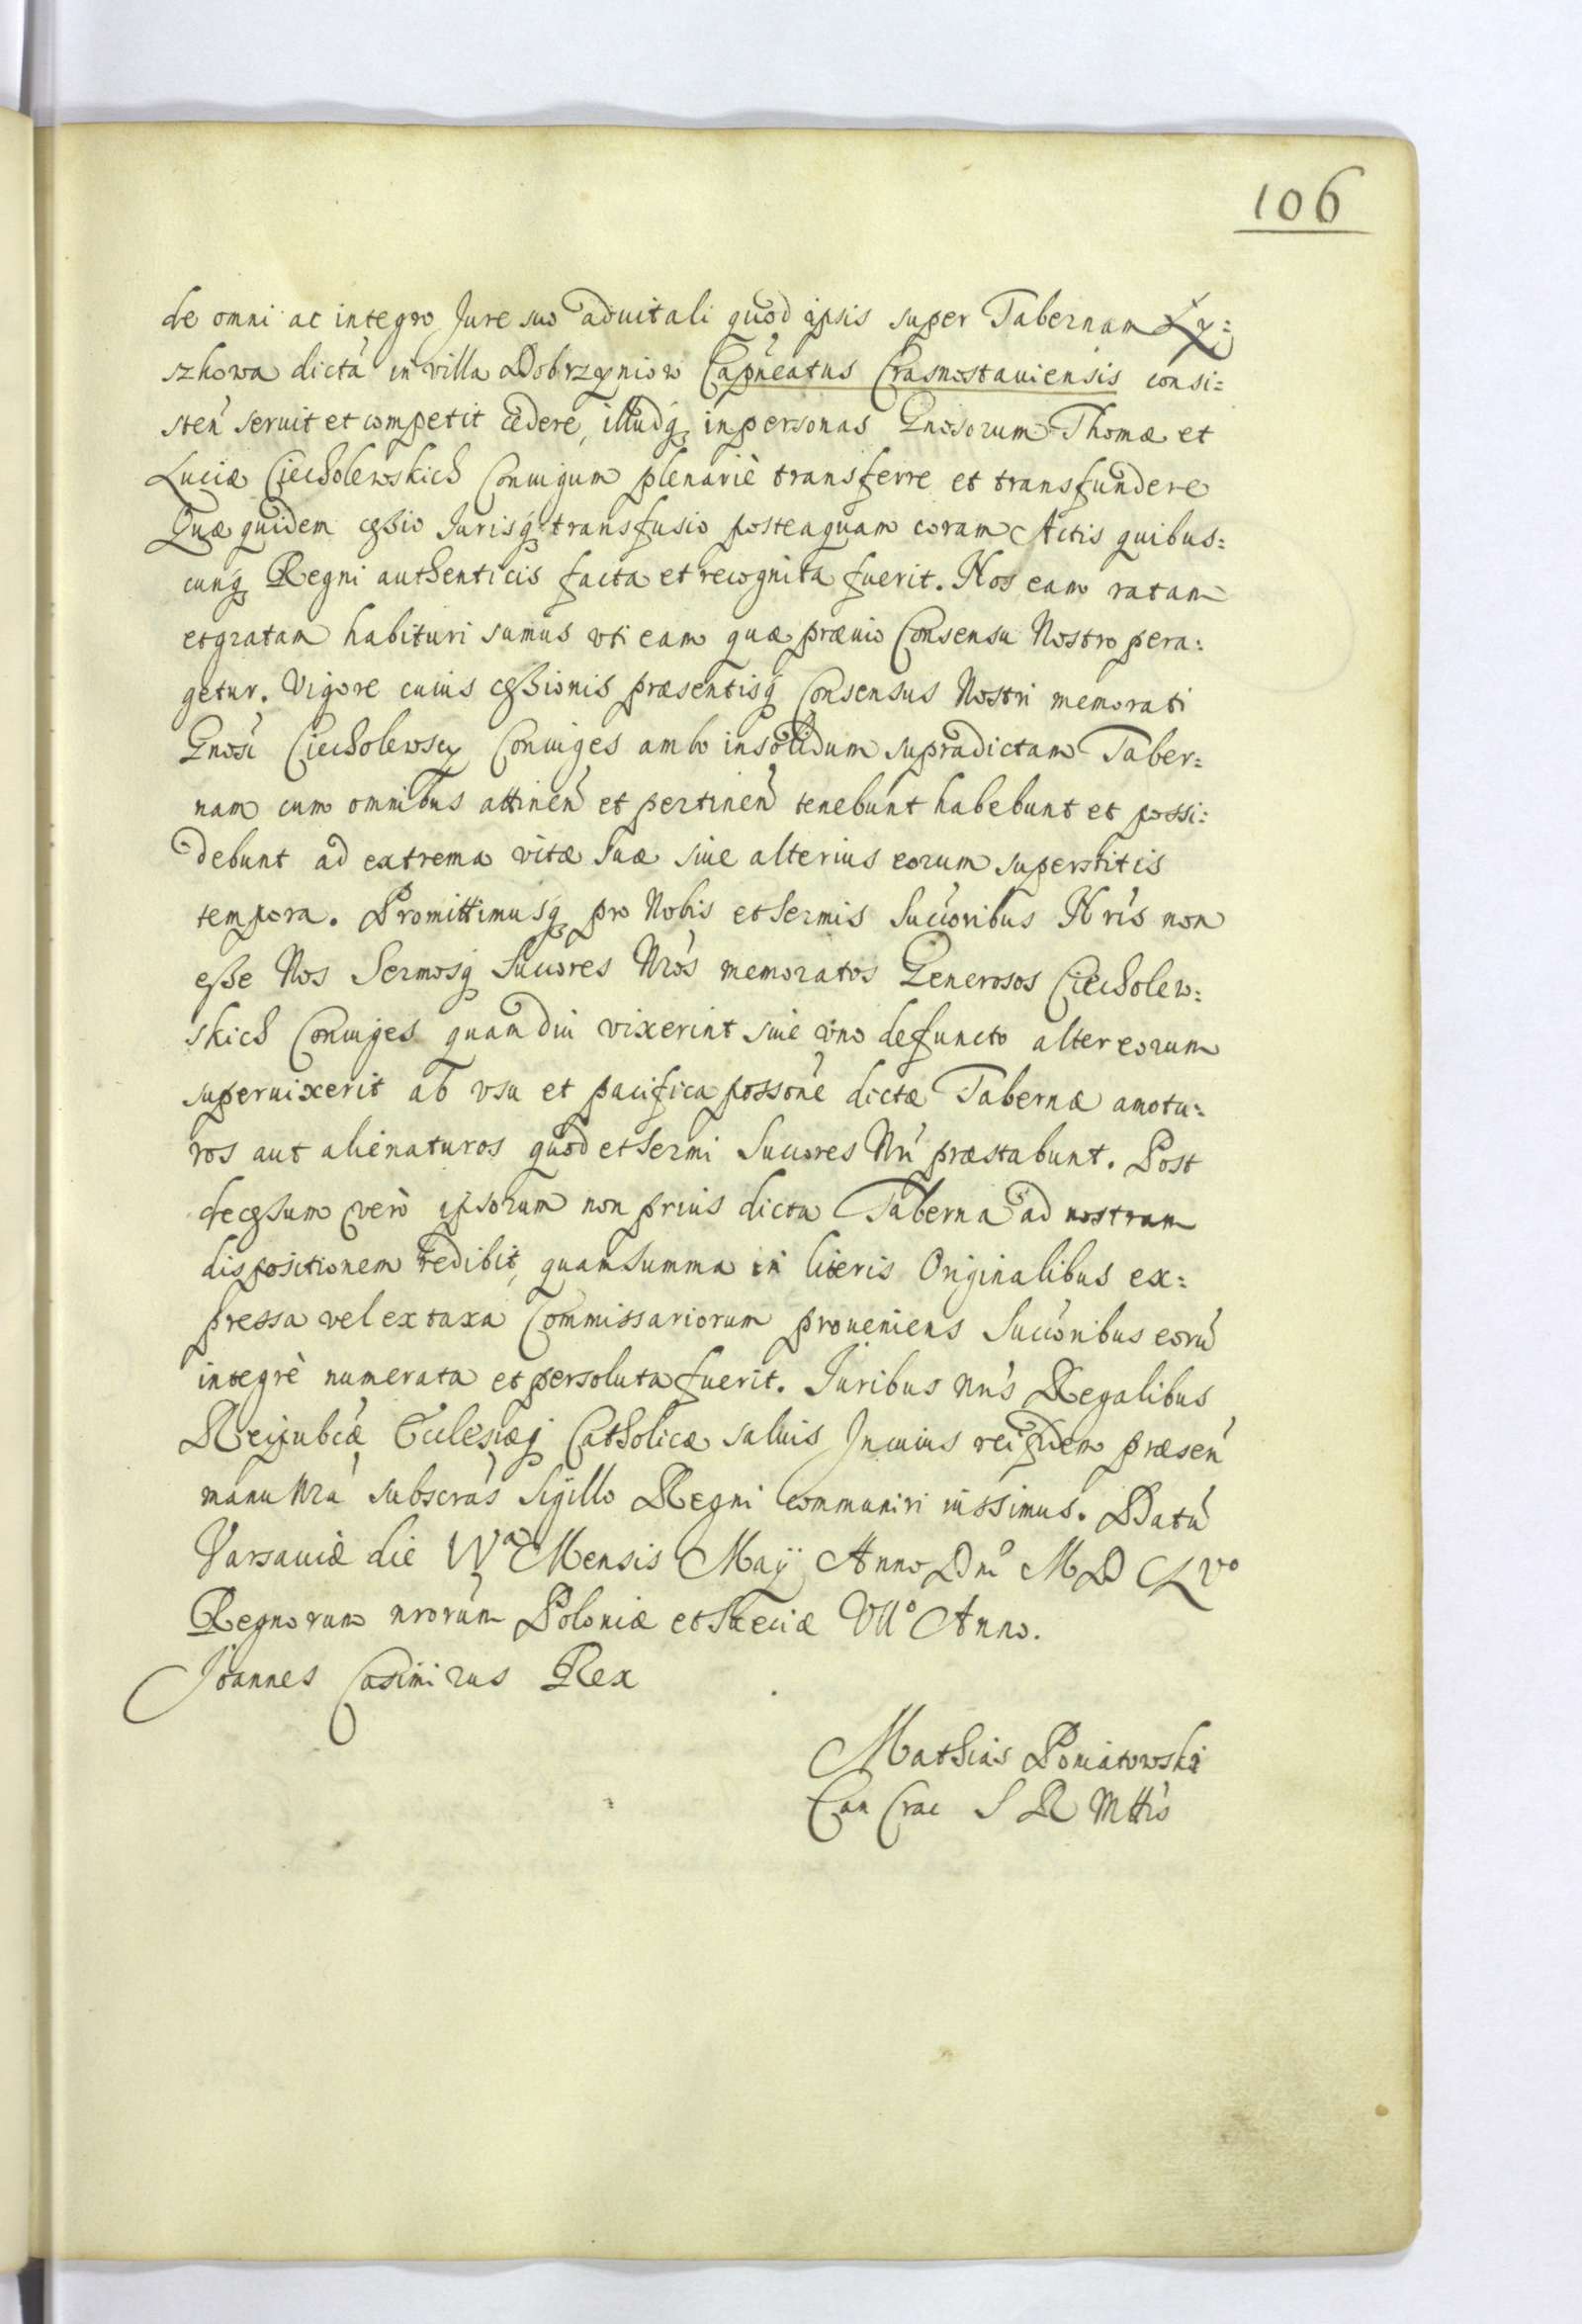 106
de omni ac integro Jure suo aduitali quod ipsis super Tabernam Ly:
szkowa dictã in villa Dobrzyniow Capneatus Crasnostauiensis consi=
sten̄ seruit et competit cedere, illudq̃ in personas Gnosorum Thomæ et
Luciæ Ciecholewskich Coniugum plenariè transferre et transfundere
Quæ quidem cessio Jurisq̃ transfusio posteaquam coram Actis quibus=
cunq̃ Regni authenticis facta et recognita fuerit. Nos eam ratam
et gratam habituri sumus vti eam quæ præuio Consensu Nostro pera:
getur. Vigore cuius cessionis præsentisq̃ Consensus Nostri memorati
Gnosi Ciecholewscy Coniuges ambo insolidum supradictam Taber=
nam cum omnibus attinen̄ et pertinen̄ tenebunt habebunt et possi:
debunt ad extrema vitæ suæ siue alterius eorum superstitis
tempora. Promittimusq̃ pro Nobis et Sermis Succoribus Nris non
esse Nos Sermosq̃ Succores Nros memoratos Generosos Ciecholew:
skich Coniuges quam diu vixerint siue vno defuncto alter eorum
superuixerit ab vsu et pacifica possone dictæ Tabernæ amotu:
ros aut alienaturos quod et Sermi Succores Nri præstabunt. Post
decessum verò ipsorum non prius dicta Taberna ad nostram
dispositionem redibit, quam summa in literis Originalibus ex=
pressa vel ex taxa Commissariorum proueniens Succoribus eorũ
integrè numerata et persoluta fuerit. Juribus nris Regalibus
Reipubcæ Ecclesiæq̃ Catholicæ saluis In cuius rei fidem præsen̄
manu nrã subscras Sigillo Regni communiri iussimus. Datũ
Varsauiæ die IVa Mensis Maij Anno Dni MDCLVo
Regnorum nrorum Poloniæ et Sueciæ VIIo Anno.
Joannes Casimirus Rex
Mathias Poniatowski
Can Crac S R Mttis